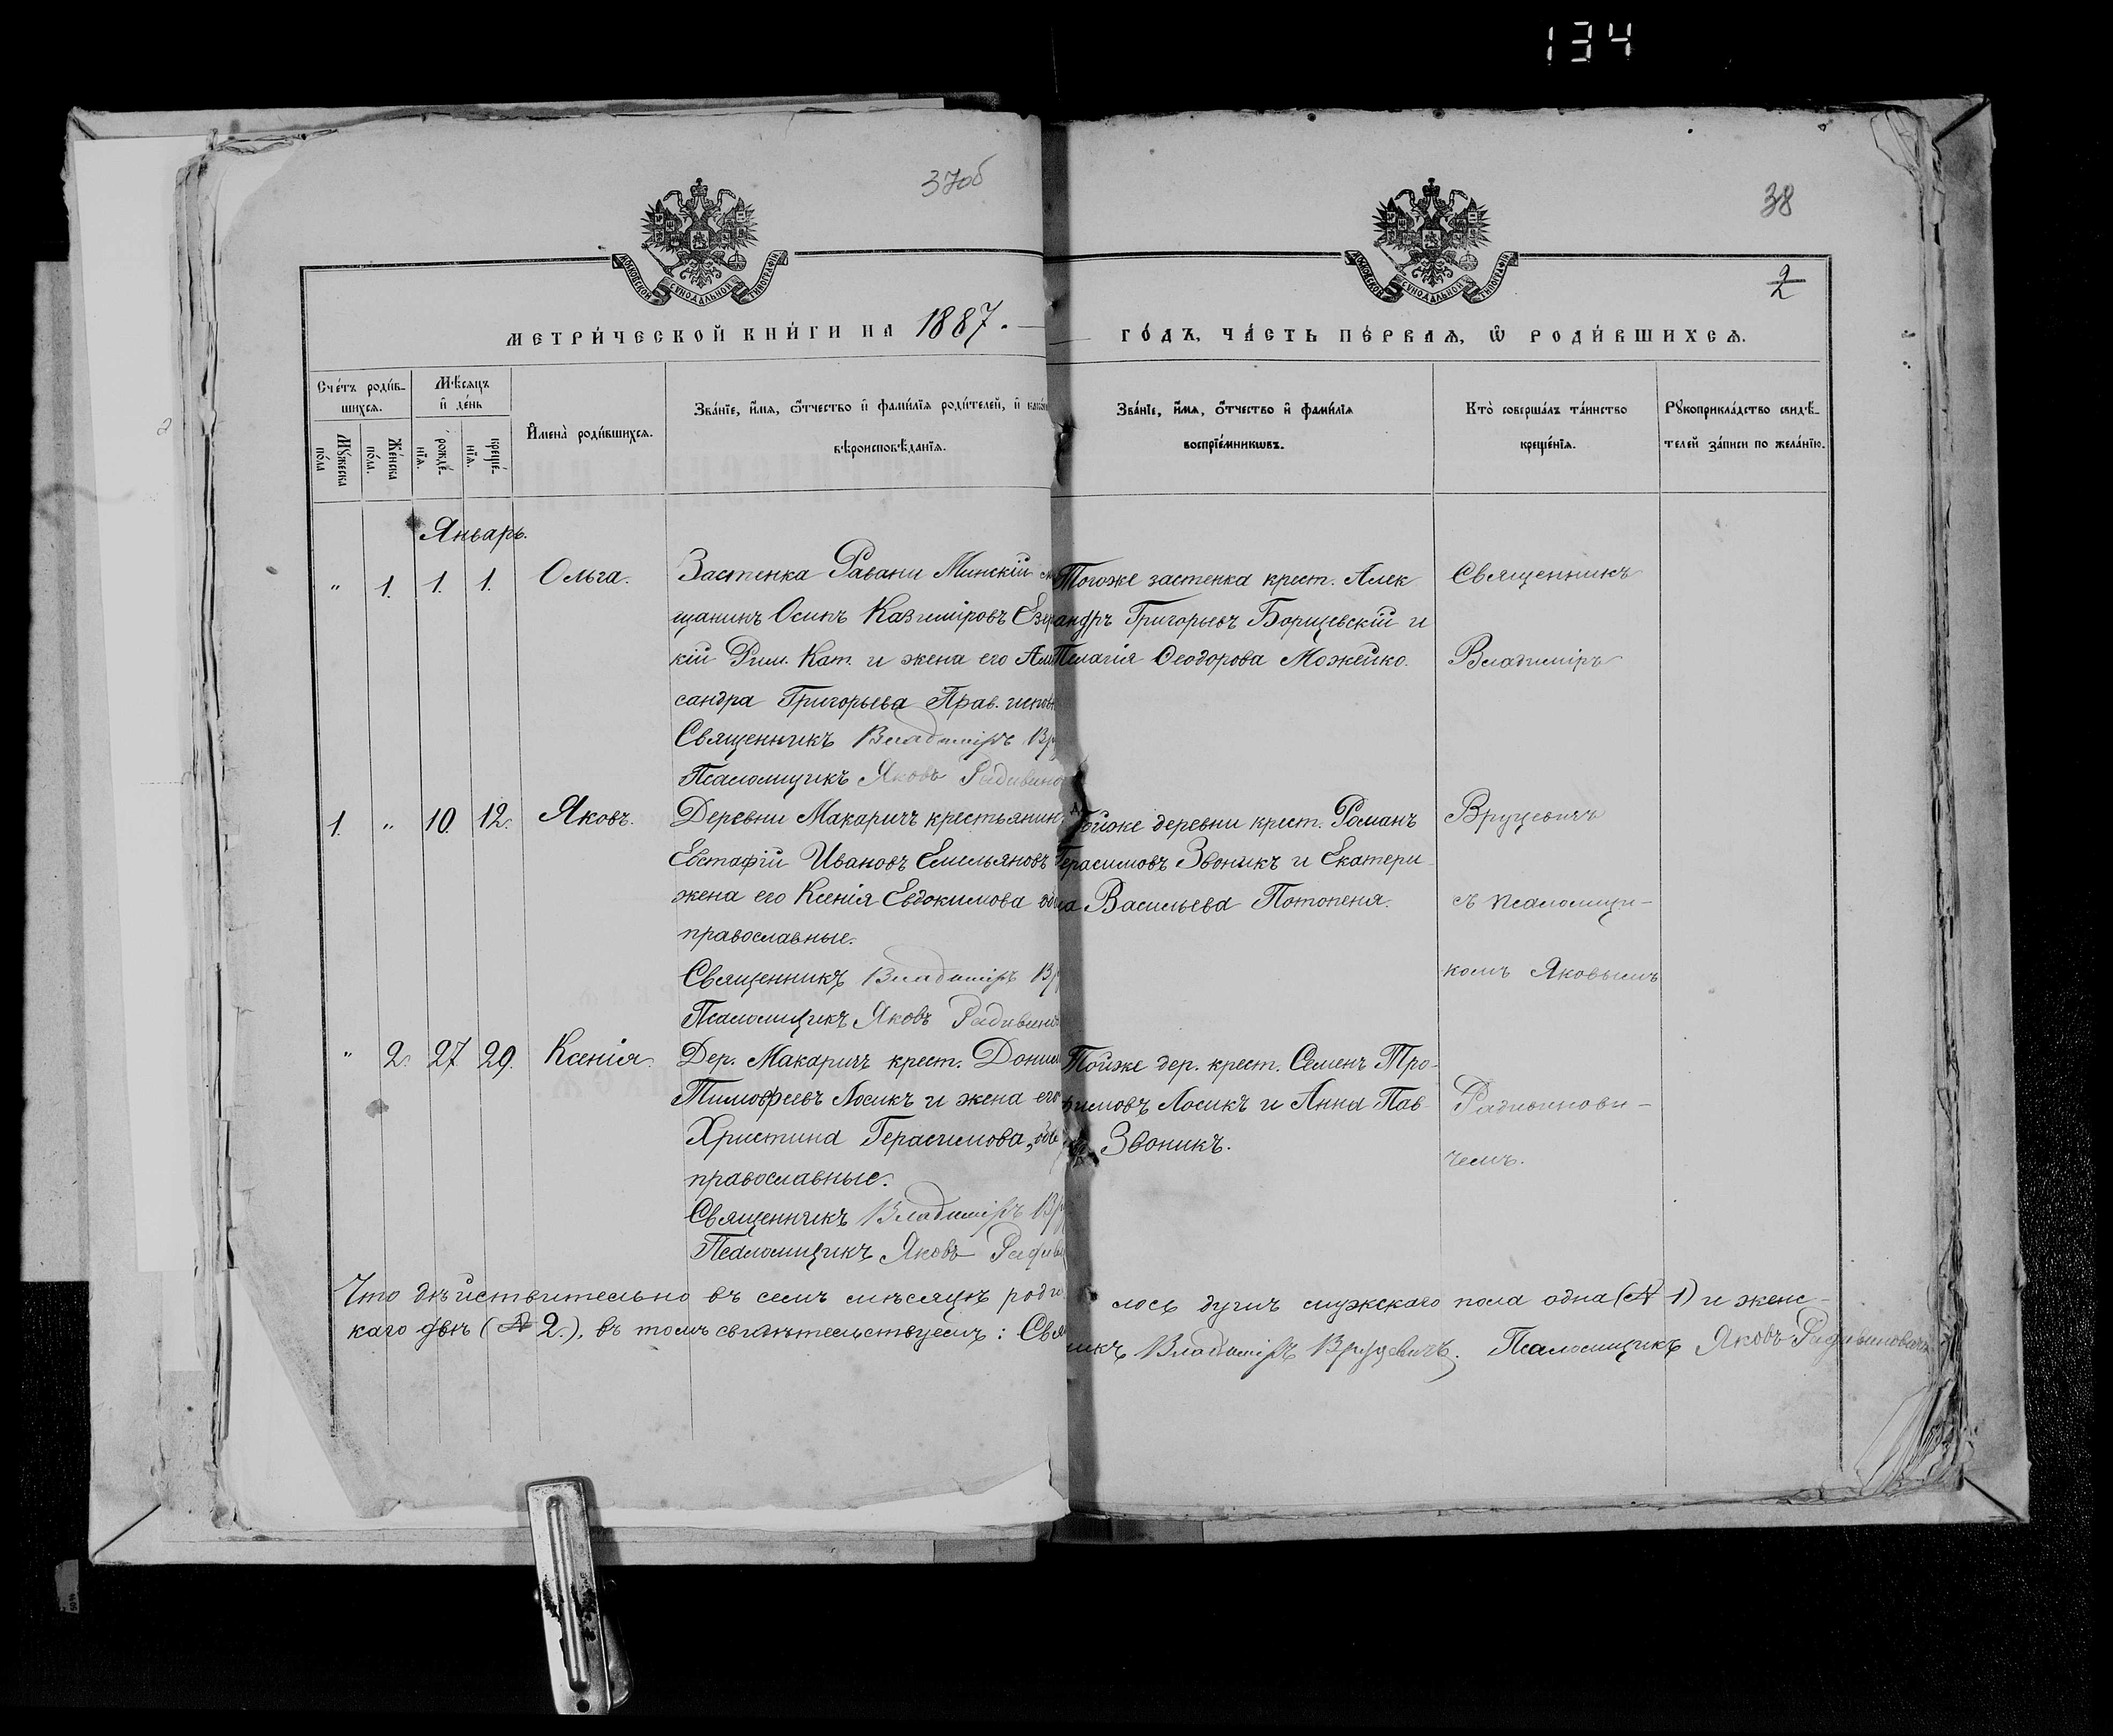 134
37об
38
МОСКОВСКОЙ СѴНОДАЛЬНОЙ ТИПОГРАФІИ
МОСКОВСКОЙ СѴНОДАЛЬНОЙ ТИПОГРАФІИ
2
МЕТРИ́ЧЕСКОЙ КНИ́ГИ НА 1887.
ГО́ДЪ, ЧА́СТЬ ПЕ́РВАѦ, Ѡ҆ РОДИ́ВШИХСѦ.
Сче́тъ роди́в-
шихсѧ.
Мꙋ́жеска
по́ла
Же́нска
по́ла.
Мѣ́сѧцъ
и҆ де́нь
рожде́-
нїѧ.
креще́-
нїѧ.
И҆мена̀ роди́вшихсѧ.
Зва́нїе, и҆́мѧ, ѻ҆́тчество и҆ фами́лїѧ роди́телей, и҆
вѣроисповѣ́данїѧ.
Зва́нїе, и҆́мѧ, ѻ҆́тчество и҆ фами́лїѧ
воспрїе́мникѡвъ.
Кто̀ соверша́лъ та́инство
креще́нїѧ.
Рꙋкоприкла́дство свидѣ́-
телей за́писи по жела́нїю.
Январь.
" 1. 1. 1. Ольга.
Застенка Равани Минскій
щанинъ Осипъ Казиміровъ
кій Рим. Кат. и жена его
сандра Григорьева Прав.
Священникъ Владиміръ
Псаломщикъ Яковъ
Тогоже застенка крест. Алек
андръ Григорьевъ Борщевскій и
Пелагія Ѳеодорова Можейко.
Священникъ
Владиміръ
1. " 10. 12. Яковъ.
Деревни Макаричъ крестьянинъ
Евстафій Ивановъ Емельяновъ
жена его Ксенія Евдокимова
православные.
Священникъ Владиміръ
Псаломщикъ Яковъ
Тойже деревни крест. Романъ
Герасимовъ Звоникъ и Екатери
на Васильева Потопеня.
Вруцевичъ
съ псаломщи-
комъ Яковымъ
" 2. 27. 29. Ксенія.
Дер. Макаричъ крест.
Тимофеевъ Лосикъ и жена его
Христина Герасимова,
православные.
Священникъ Владиміръ
Псаломщикъ Яковъ
Тойже дер. крест. Семенъ Тро-
фимовъ Лосикъ и Анна Пав-
Звоникъ.
Радивинови-
чемъ.
Что дѣйствительно въ семъ мѣсяцѣ роди лось душъ мужскаго пола одна (№ 1) и женс-
каго двѣ (№ 2.), въ томъ свидѣтельствуемъ: никъ Владиміръ Вруцевичъ. Псаломщикъ Яковъ Радивиновичъ